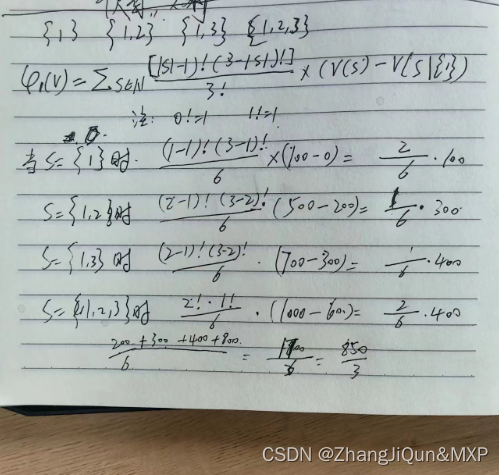 {1} {1,2} {1,3} {1,2,3}
φ₁(V) = Σ S∈N [|S|-1)!(3-|S|)!]/3! × (V(S) - V(S\{1})
注: 0!=1 1!=1
当S={1}时 (1-1)!(3-1)!/6 ×(100-0)= 2/6 ·100
S={1,2}时 (2-1)!(3-2)!/6 (500-200)= 1/6 ·300
S={1,3}时 (2-1)!(3-2)!/6 ·(700-300)= 1/6 ·400
S={1,2,3}时 2!·1!/6 ·(1000-600)= 2/6 ·400
200+300+400+800/6 = 1700/6 = 850/3
CSDN @ZhangJiQun&MXP